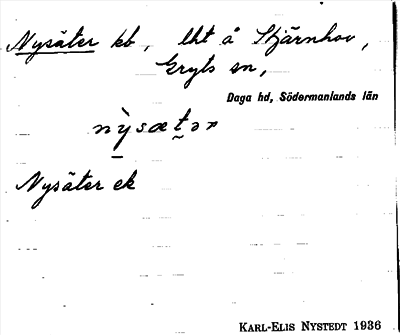 Nysäter kb, lht å Stjärnhov,
Gryts sn,
Daga hd, Södermanlands län
nỳsætər
Nysäter ek
KARL-ELIS NYSTEDT 1936